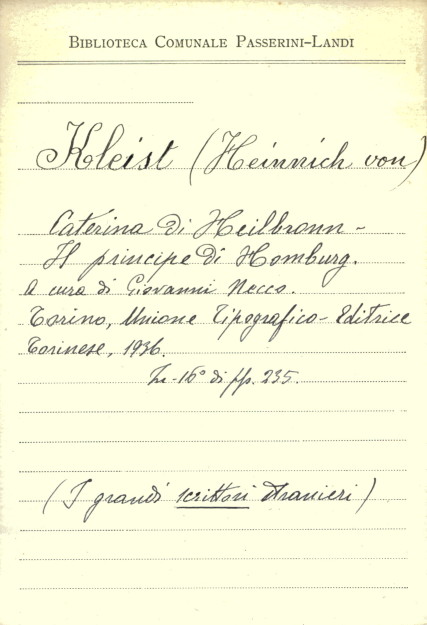 BIBLIOTECA COMUNALE PASSERINI-LANDI
Kleist (Heinrich von)
Caterina di Heilbronn -
Il principe di Homburg.
A cura di Giovanni Necco.
Torino, Unione Tipografico-Editrice
Torinese, 1936.
In-16° di pp. 235.
(I grandi scrittori stranieri)